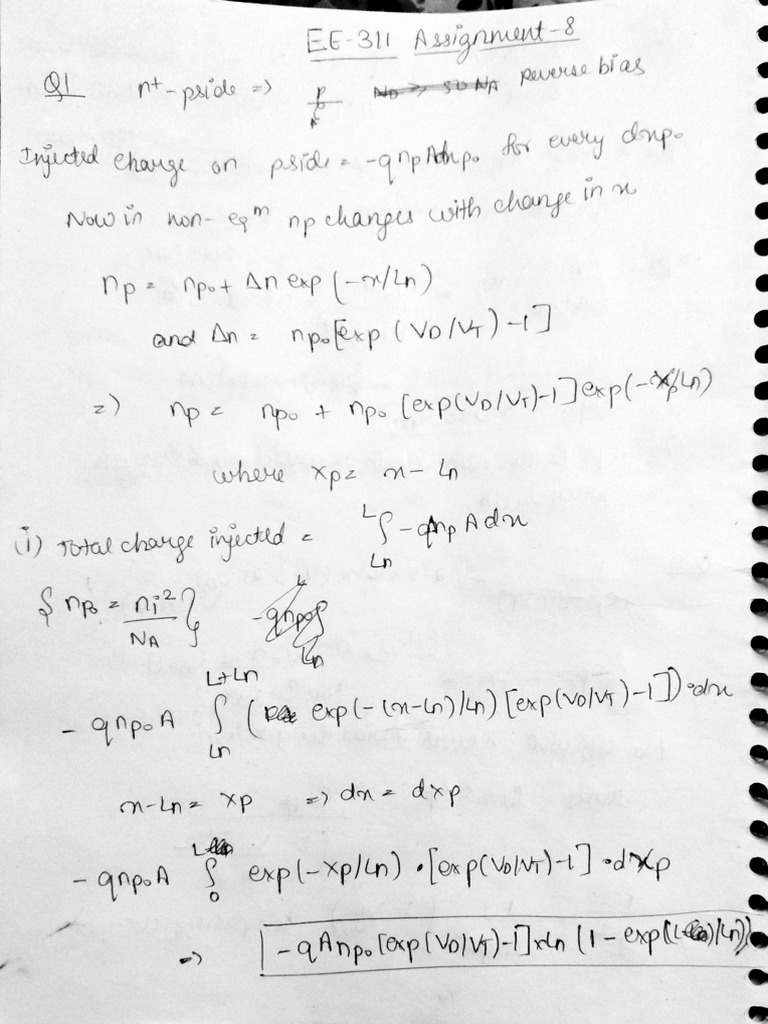 EE-311 Assignment-8
Q1 n+ - pside => reverse bias
Injected charge on pside = -qnpAdnpo for every dnpo
Now in non-eqm np changes with change in x
np = npo + Δn exp (-x/Ln)
and Δn = npo[exp (VD/VT) -1]
=> np = npo + npo [exp(VD/VT)-1] exp(-xp/Ln)
where xp = x - Ln
(i) Total charge injected = L∫Ln -qnp A dx
{ npo = ni²/NA }
- qnpo A L+Ln∫Ln ( exp(-(x-Ln)/Ln) [exp(VD/VT)-1]) • dx
x-Ln = xp => dx = dxp
- qnpo A L∫0 exp(-xp/Ln) • [exp(VD/VT)-1] • dxp
=> -qAnpo [exp(VD/VT)-1]xLn (1 - exp((L)/Ln))